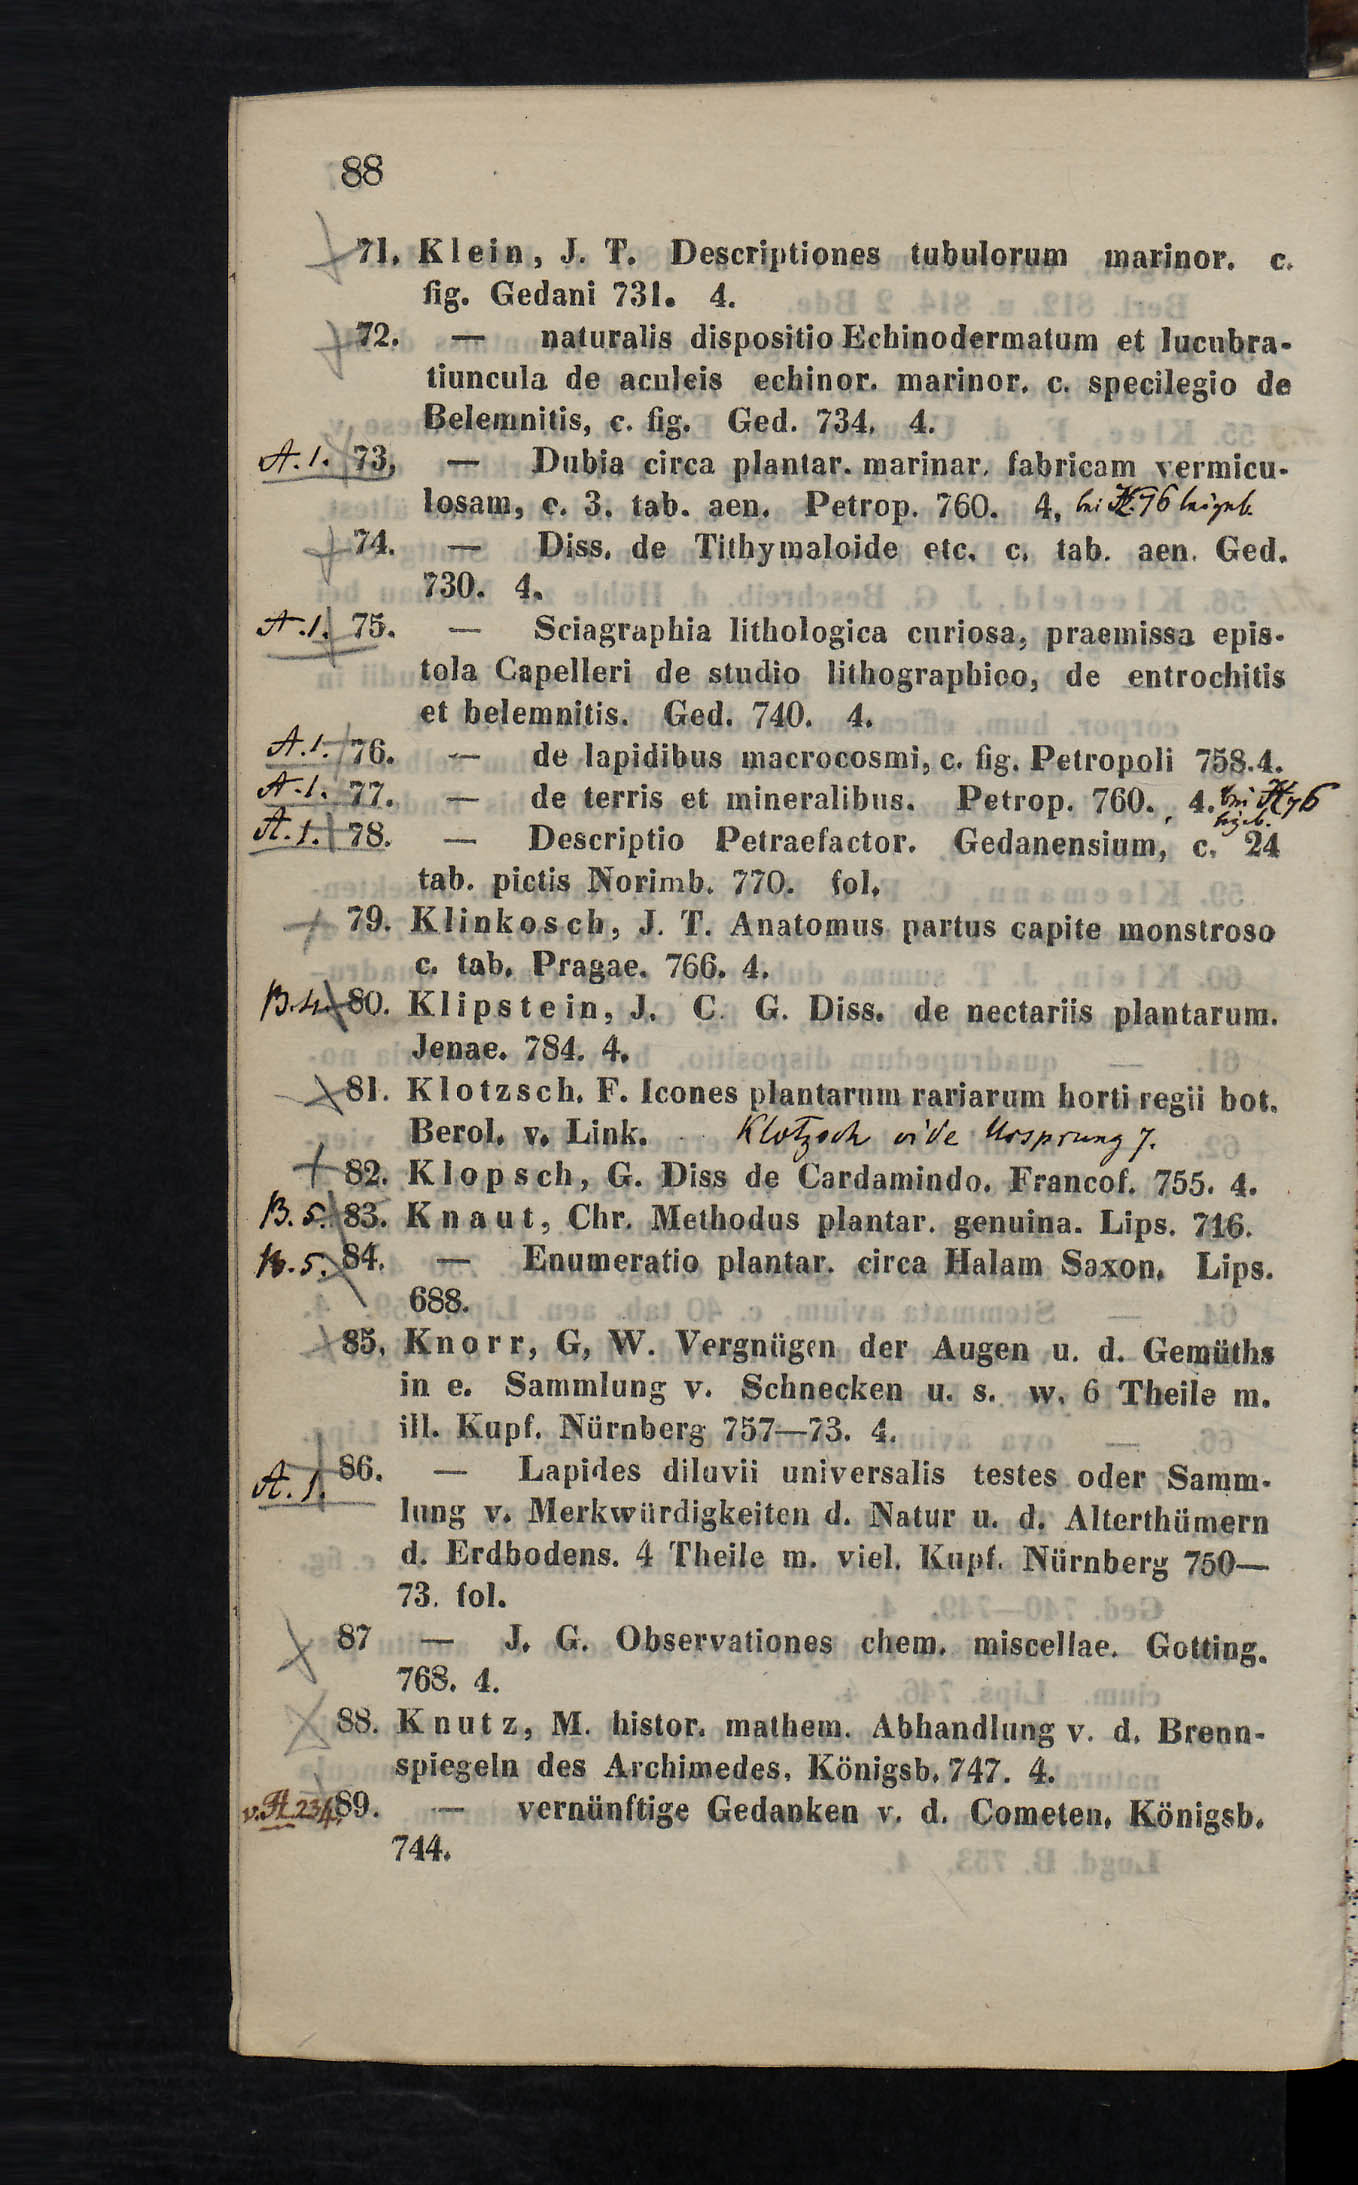 88
71. Klein, J. T. Descriptiones tubulorum marinor. c.
fig. Gedani 731. 4.
72. — naturalis dispositio Echinodermatum et lucubra-
tiuncula de aculeis echinor. marinor. c. specilegio de
Belemnitis, c. fig. Ged. 734. 4.
A.1. 73, — Dubia circa plantar. marinar. fabricam vermicu-
losam, c. 3. tab. aen. Petrop. 760. 4, bei K.76 beigeb.
74. — Diss. de Tithymaloide etc. c. tab. aen. Ged.
730. 4.
A.1. 75. — Sciagraphia lithologica curiosa, praemissa epis-
tola Capelleri de studio lithographico, de entrochitis
et belemnitis. Ged. 740. 4.
A.1. 76. — de lapidibus macrocosmi, c. fig. Petropoli 758.4.
A.1. 77. — de terris et mineralibus. Petrop. 760. 4. bei K76
beigeb.
A.1. 78. — Descriptio Petraefactor. Gedanensium, c. 24
tab. pictis Norimb. 770. fol.
79. Klinkosch, J. T. Anatomus partus capite monstroso
c. tab. Pragae. 766. 4.
B.4. 80. Klipstein, J. C. G. Diss. de nectariis plantarum.
Jenae. 784. 4.
81. Klotzsch. F. Icones plantarum rariarum horti regii bot.
Berol. v. Link. Klotzsch vide Ursprung 7.
82. Klopsch, G. Diss de Cardamindo. Francof. 755. 4.
B.5. 83. Knaut, Chr. Methodus plantar. genuina. Lips. 716.
B.5. 84. — Enumeratio plantar. circa Halam Saxon. Lips.
688.
85, Knorr, G, W. Vergnügen der Augen u. d. Gemüths
in e. Sammlung v. Schnecken u. s. w. 6 Theile m.
ill. Kupf. Nürnberg 757—73. 4.
A.1. 86. — Lapides diluvii universalis testes oder Samm-
lung v. Merkwürdigkeiten d. Natur u. d. Alterthümern
d. Erdbodens. 4 Theile m. viel. Kupf. Nürnberg 750—
73. fol.
87 — J. G. Observationes chem. miscellae. Gotting.
768. 4.
88. Knutz, M. histor. mathem. Abhandlung v. d. Brenn-
spiegeln des Archimedes, Königsb. 747. 4.
v. A 234. 89. — vernünftige Gedanken v. d. Cometen, Königsb.
744.